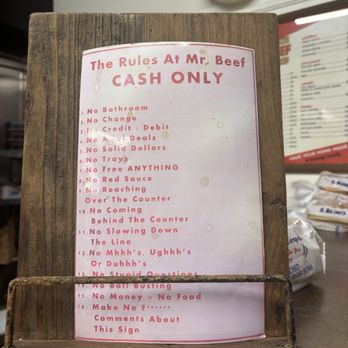 The Rules At Mr. Beef
CASH ONLY
1. No Bathroom
2. No Change
3. No Credit / Debit
4. No Deals
5. No Solid Dollars
6. No Trays
7. No Free ANYTHING
8. No Red Sauce
9. No Reaching
Over The Counter
10. No Coming
Behind The Counter
11. No Slowing Down
The Line
12. No Mhhh's, Ughhh's
Or Duhhh's
13. No Stupid Questions
14. No Ball Busting
15. No Money - No Food
16. Make No F------
Comments About
This Sign